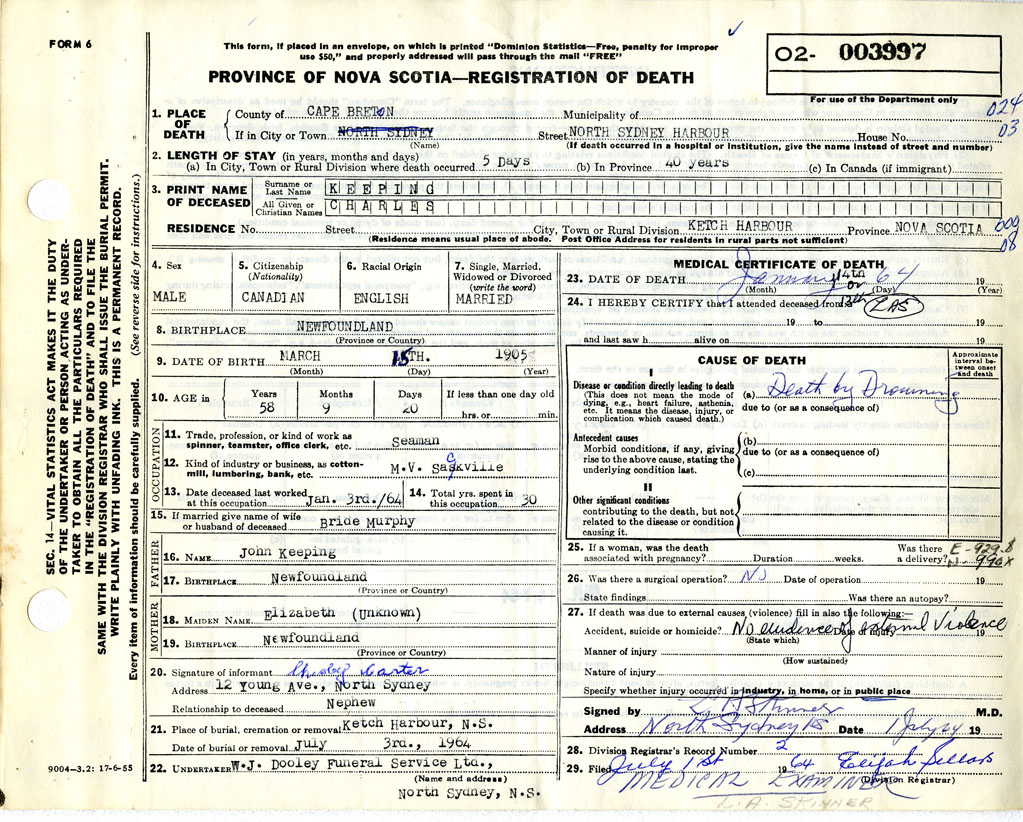 FORM 6
This form, if placed in an envelope, on which is printed "Dominion Statistics—Free, penalty for improper
use $50," and properly addressed will pass through the mail "FREE"
PROVINCE OF NOVA SCOTIA—REGISTRATION OF DEATH
02- 003997
For use of the Department only
024
03
1. PLACE OF DEATH
County of CAPE BRETON Municipality of
If in City or Town NORTH SYDNEY Street NORTH SYDNEY HARBOUR House No.
(Name) (If death occurred in a hospital or institution, give the name instead of street and number)
2. LENGTH OF STAY (in years, months and days)
(a) In City, Town or Rural Division where death occurred 5 Days (b) In Province 40 years (c) In Canada (if immigrant)
3. PRINT NAME OF DECEASED
Surname or Last Name KEEPING
All Given or Christian Names CHARLES
RESIDENCE No. Street City, Town or Rural Division KETCH HARBOUR Province NOVA SCOTIA
009
08
(Residence means usual place of abode. Post Office Address for residents in rural parts not sufficient)
4. Sex
MALE
5. Citizenship (Nationality)
CANADIAN
6. Racial Origin
ENGLISH
7. Single, Married, Widowed or Divorced (write the word)
MARRIED
8. BIRTHPLACE NEWFOUNDLAND
(Province or Country)
9. DATE OF BIRTH MARCH 15TH. 1905
(Month) (Day) (Year)
10. AGE in
Years Months Days If less than one day old
58 9 20 hrs. or min.
OCCUPATION
11. Trade, profession, or kind of work as
spinner, teamster, office clerk, etc. Seaman
12. Kind of industry or business, as cotton-
mill, lumbering, bank, etc. M.V. Saskville
13. Date deceased last worked
at this occupation Jan. 3rd./64
14. Total yrs. spent in
this occupation 30
15. If married give name of wife
or husband of deceased Bride Murphy
FATHER
16. NAME John Keeping
17. BIRTHPLACE Newfoundland
(Province or Country)
MOTHER
18. MAIDEN NAME Elizabeth (Unknown)
19. BIRTHPLACE Newfoundland
(Province or Country)
20. Signature of informant Carter
Address 12 Young Ave., North Sydney
Relationship to deceased Nephew
21. Place of burial, cremation or removal Ketch Harbour, N.S.
Date of burial or removal July 3rd., 1964
22. UNDERTAKER W.J. Dooley Funeral Service Ltd.,
(Name and address)
North Sydney, N.S.
MEDICAL CERTIFICATE OF DEATH
23. DATE OF DEATH January 14th or 64 19
(Month) (Day) (Year)
24. I HEREBY CERTIFY that I attended deceased from 13th LAS
19 to 19
and last saw h alive on 19
CAUSE OF DEATH
Approximate interval between onset and death
I
Disease or condition directly leading to death
(This does not mean the mode of
dying, e.g., heart failure, asthenia,
etc. It means the disease, injury, or
complication which caused death.)
(a) Death by Drowning
due to (or as a consequence of)
Antecedent causes
Morbid conditions, if any, giving
rise to the above cause, stating the
underlying condition last.
(b)
due to (or as a consequence of)
(c)
II
Other significant conditions
contributing to the death, but not
related to the disease or condition
causing it.
25. If a woman, was the death
associated with pregnancy? Duration weeks. Was there a delivery? 19
E-929.8
990X
26. Was there a surgical operation? No Date of operation 19
State findings Was there an autopsy?
27. If death was due to external causes (violence) fill in also the following:—
Accident, suicide or homicide? Date of injury 19
No evidence of external Violence
(State which)
Manner of injury
(How sustained)
Nature of injury
Specify whether injury occurred in industry, in home, or in public place
Signed by L A Skinner M.D.
Address North Sydney NS Date 1 July 64 19
28. Division Registrar's Record Number 2
29. Filed July 1st 1964 Elijah Sellars
(Division Registrar)
MEDICAL EXAMINER
L.A. SKINNER
SEC. 14—VITAL STATISTICS ACT MAKES IT THE DUTY
OF THE UNDERTAKER OR PERSON ACTING AS UNDER-
TAKER TO OBTAIN ALL THE PARTICULARS REQUIRED
IN THE "REGISTRATION OF DEATH" AND TO FILE THE
SAME WITH THE DIVISION REGISTRAR WHO SHALL ISSUE THE BURIAL PERMIT.
WRITE PLAINLY WITH UNFADING INK. THIS IS A PERMANENT RECORD.
Every item of information should be carefully supplied. (See reverse side for instructions.)
9004—3.2: 17-6-55